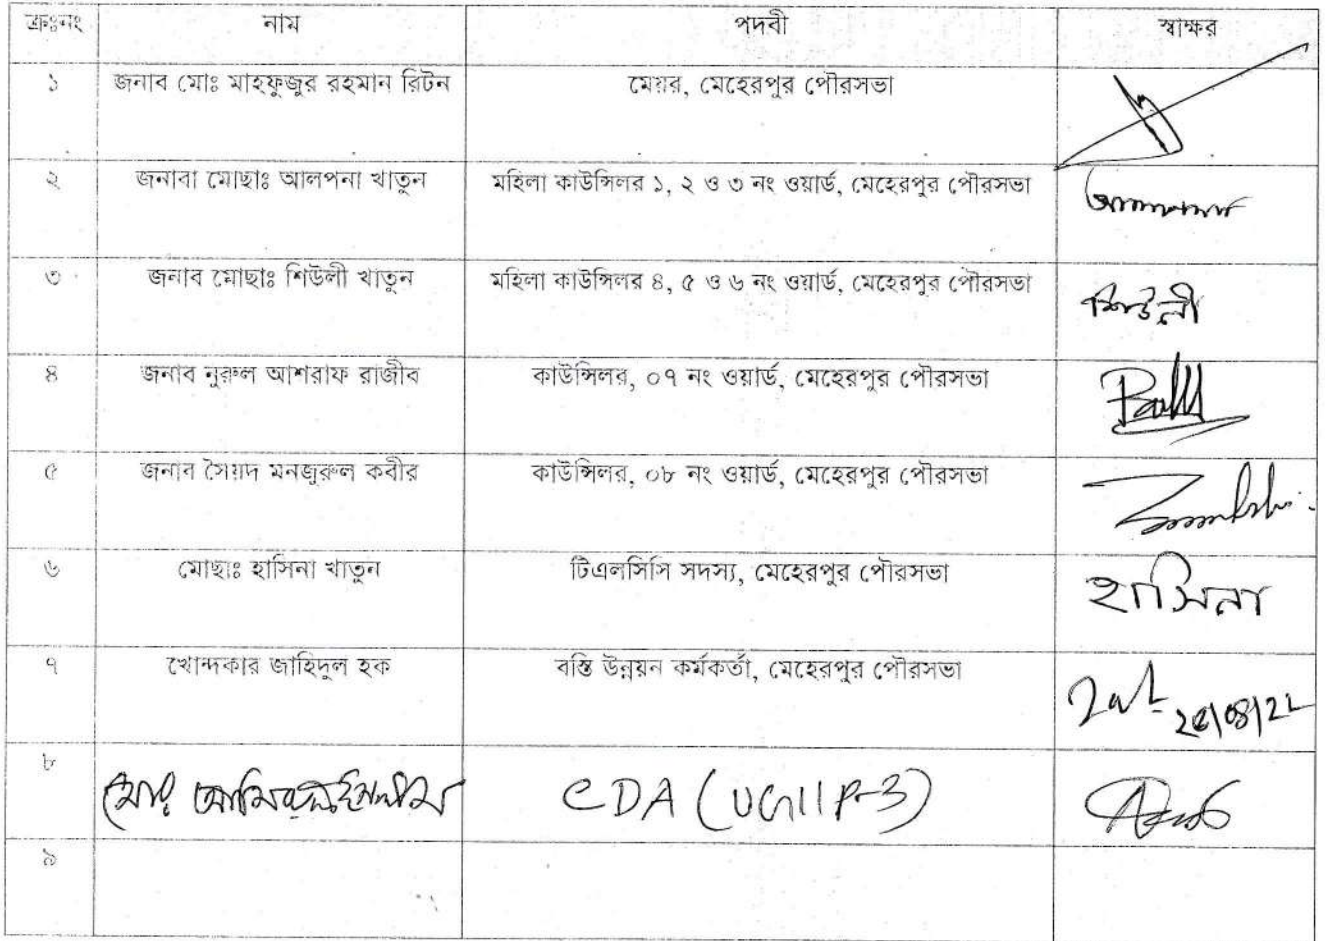 ক্রঃনং নাম পদবী স্বাক্ষর
১ জনাব মোঃ মাহফুজুর রহমান রিটন মেয়র, মেহেরপুর পৌরসভা
২ জনাবা মোছাঃ আলপনা খাতুন মহিলা কাউন্সিলর ১, ২ ও ৩ নং ওয়ার্ড, মেহেরপুর পৌরসভা
৩ জনাব মোছাঃ শিউলী খাতুন মহিলা কাউন্সিলর ৪, ৫ ও ৬ নং ওয়ার্ড, মেহেরপুর পৌরসভা শিউলী
৪ জনাব নুরুল আশরাফ রাজীব কাউন্সিলর, ০৭ নং ওয়ার্ড, মেহেরপুর পৌরসভা
৫ জনাব সৈয়দ মনজুরুল কবীর কাউন্সিলর, ০৮ নং ওয়ার্ড, মেহেরপুর পৌরসভা
৬ মোছাঃ হাসিনা খাতুন টিএলসিসি সদস্য, মেহেরপুর পৌরসভা হাসিনা
৭ খোন্দকার জাহিদুল হক বস্তি উন্নয়ন কর্মকর্তা, মেহেরপুর পৌরসভা
৮ মোঃ CDA (UGIIP-3)
৯